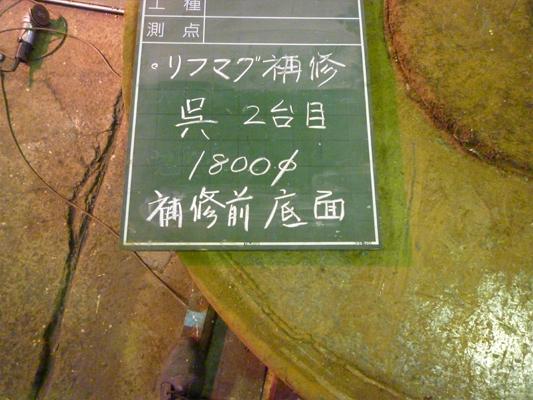 工種
測点
・リフマグ補修
呉 2台目
1800φ
補修前 底面